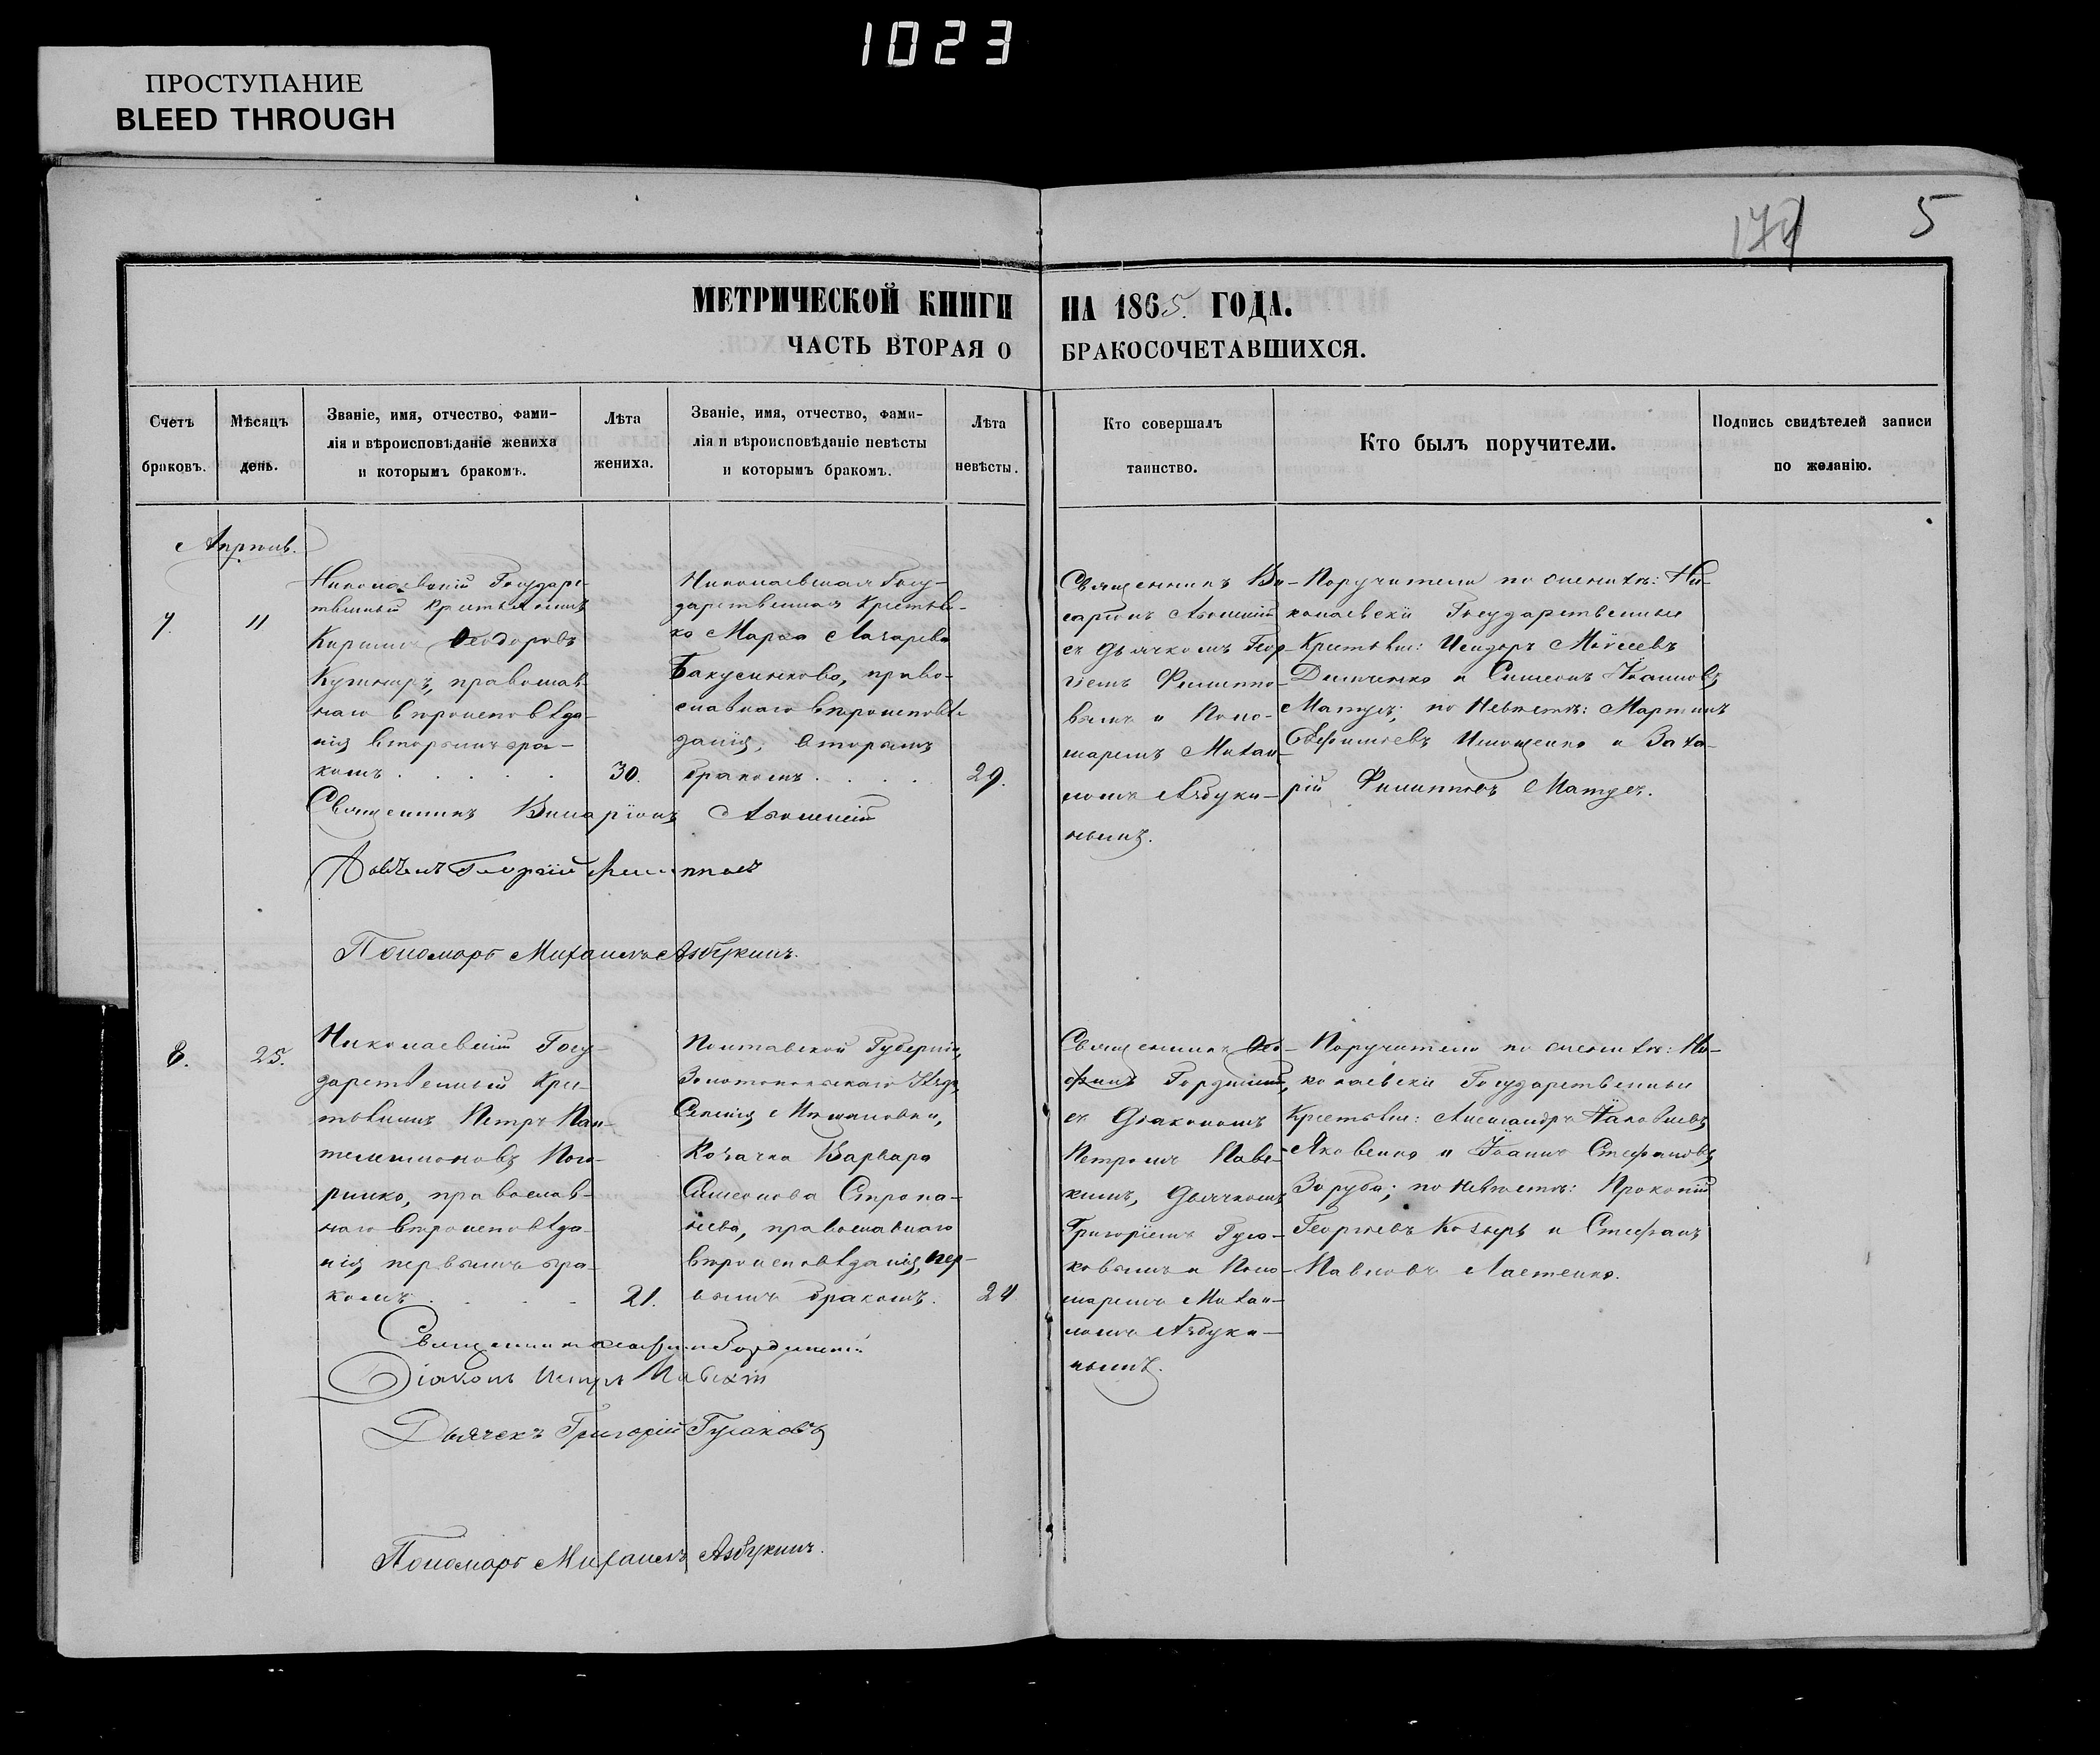 1023
ПРОСТУПАНИЕ
BLEED THROUGH
5
МЕТРИЧЕСКОЙ КНИГИ НА 1865. ГОДА.
ЧАСТЬ ВТОРАЯ О БРАКОСОЧЕТАВШИХСЯ.
Счетъ
браковъ.
Мѣсяцъ
день.
Званіе, имя, отчество, фами-
лія и вѣроисповѣданіе жениха
и которымъ бракомъ.
Лѣта
жениха.
Званіе, имя, отчество, фами-
лія и вѣроисповѣданіе невѣсты
и которымъ бракомъ.
Лѣта
невѣсты.
Кто совершалъ
таинство.
Кто былъ поручители.
Подпись свидѣтелей записи
по желанію.
Апрѣль.
7.
11
Николаевскій Государс-
твенный Крестьянинъ
Кирилъ Ѳеодоровъ
православ-
наго вѣроисповѣда-
нія вторымъ бра-
комъ . . . . .
30.
Николаевская Госу-
дарственная Крестьян-
ка Марѳа Лазарева
Бакусникова, право-
славнаго вѣроисповѣ-
данія, вторымъ
бракомъ . . . .
29.
Священникъ Ви-
саріонъ
съ Дьячкомъ Геор-
гіемъ Филиппо-
вымъ и Поно-
маремъ Михаи-
ломъ Азбуки-
нымъ.
Поручители по женихѣ: Ни-
колаевскіе Государственные
Крестьяне: Исидоръ Моѵсеевъ
Димченко и Симеонъ Іоанновъ
Матусъ; по невѣстѣ: Мартинъ
Евфиміевъ Инощенко и Заха-
рій Филипповъ Матусъ.
Священникъ Висаріонъ
Георгій Филипповъ
Пономарь Михаилъ Азбукинъ.
8.
25.
Николаевскій Госу-
дарственный Кре-
стьянинъ Петръ Пан-
телеимоновъ Пого-
рилко, православ-
наго вѣроисповѣда-
нія первымъ бра-
комъ . . . .
21.
Полтавской Губерніи,
Золотоношскаго Уѣзда,
Селенія
Козачка Варвара
Симеонова Стропа-
нева, православнаго
вѣроисповѣданія, пер-
вымъ бракомъ.
24
Священникъ Ѳео-
филъ
съ Діакономъ
Петромъ Павс-
кимъ, Дьячкомъ
Григоріемъ Гуса-
ковымъ и Поно-
маремъ Михаи-
ломъ Азбуки-
нымъ.
Поручители по женихѣ: Ни-
колаевскіе Государственные
Крестьяне: Александръ Іаковлевъ
Яковенко и Іоаннъ Стефановъ
Заруба; по невѣстѣ: Прокопій
Георгіевъ Козырь и Стефанъ
Павловъ Ластенко.
Священникъ
Діаконъ Петръ Павскій
Дьячекъ Григорій Гусаковъ
Пономарь Михаилъ Азбукинъ.